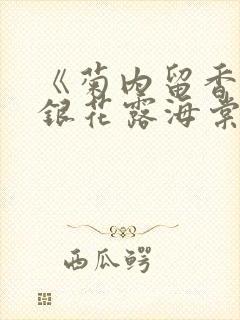 《菊内留香
银花露海棠
西瓜鳄